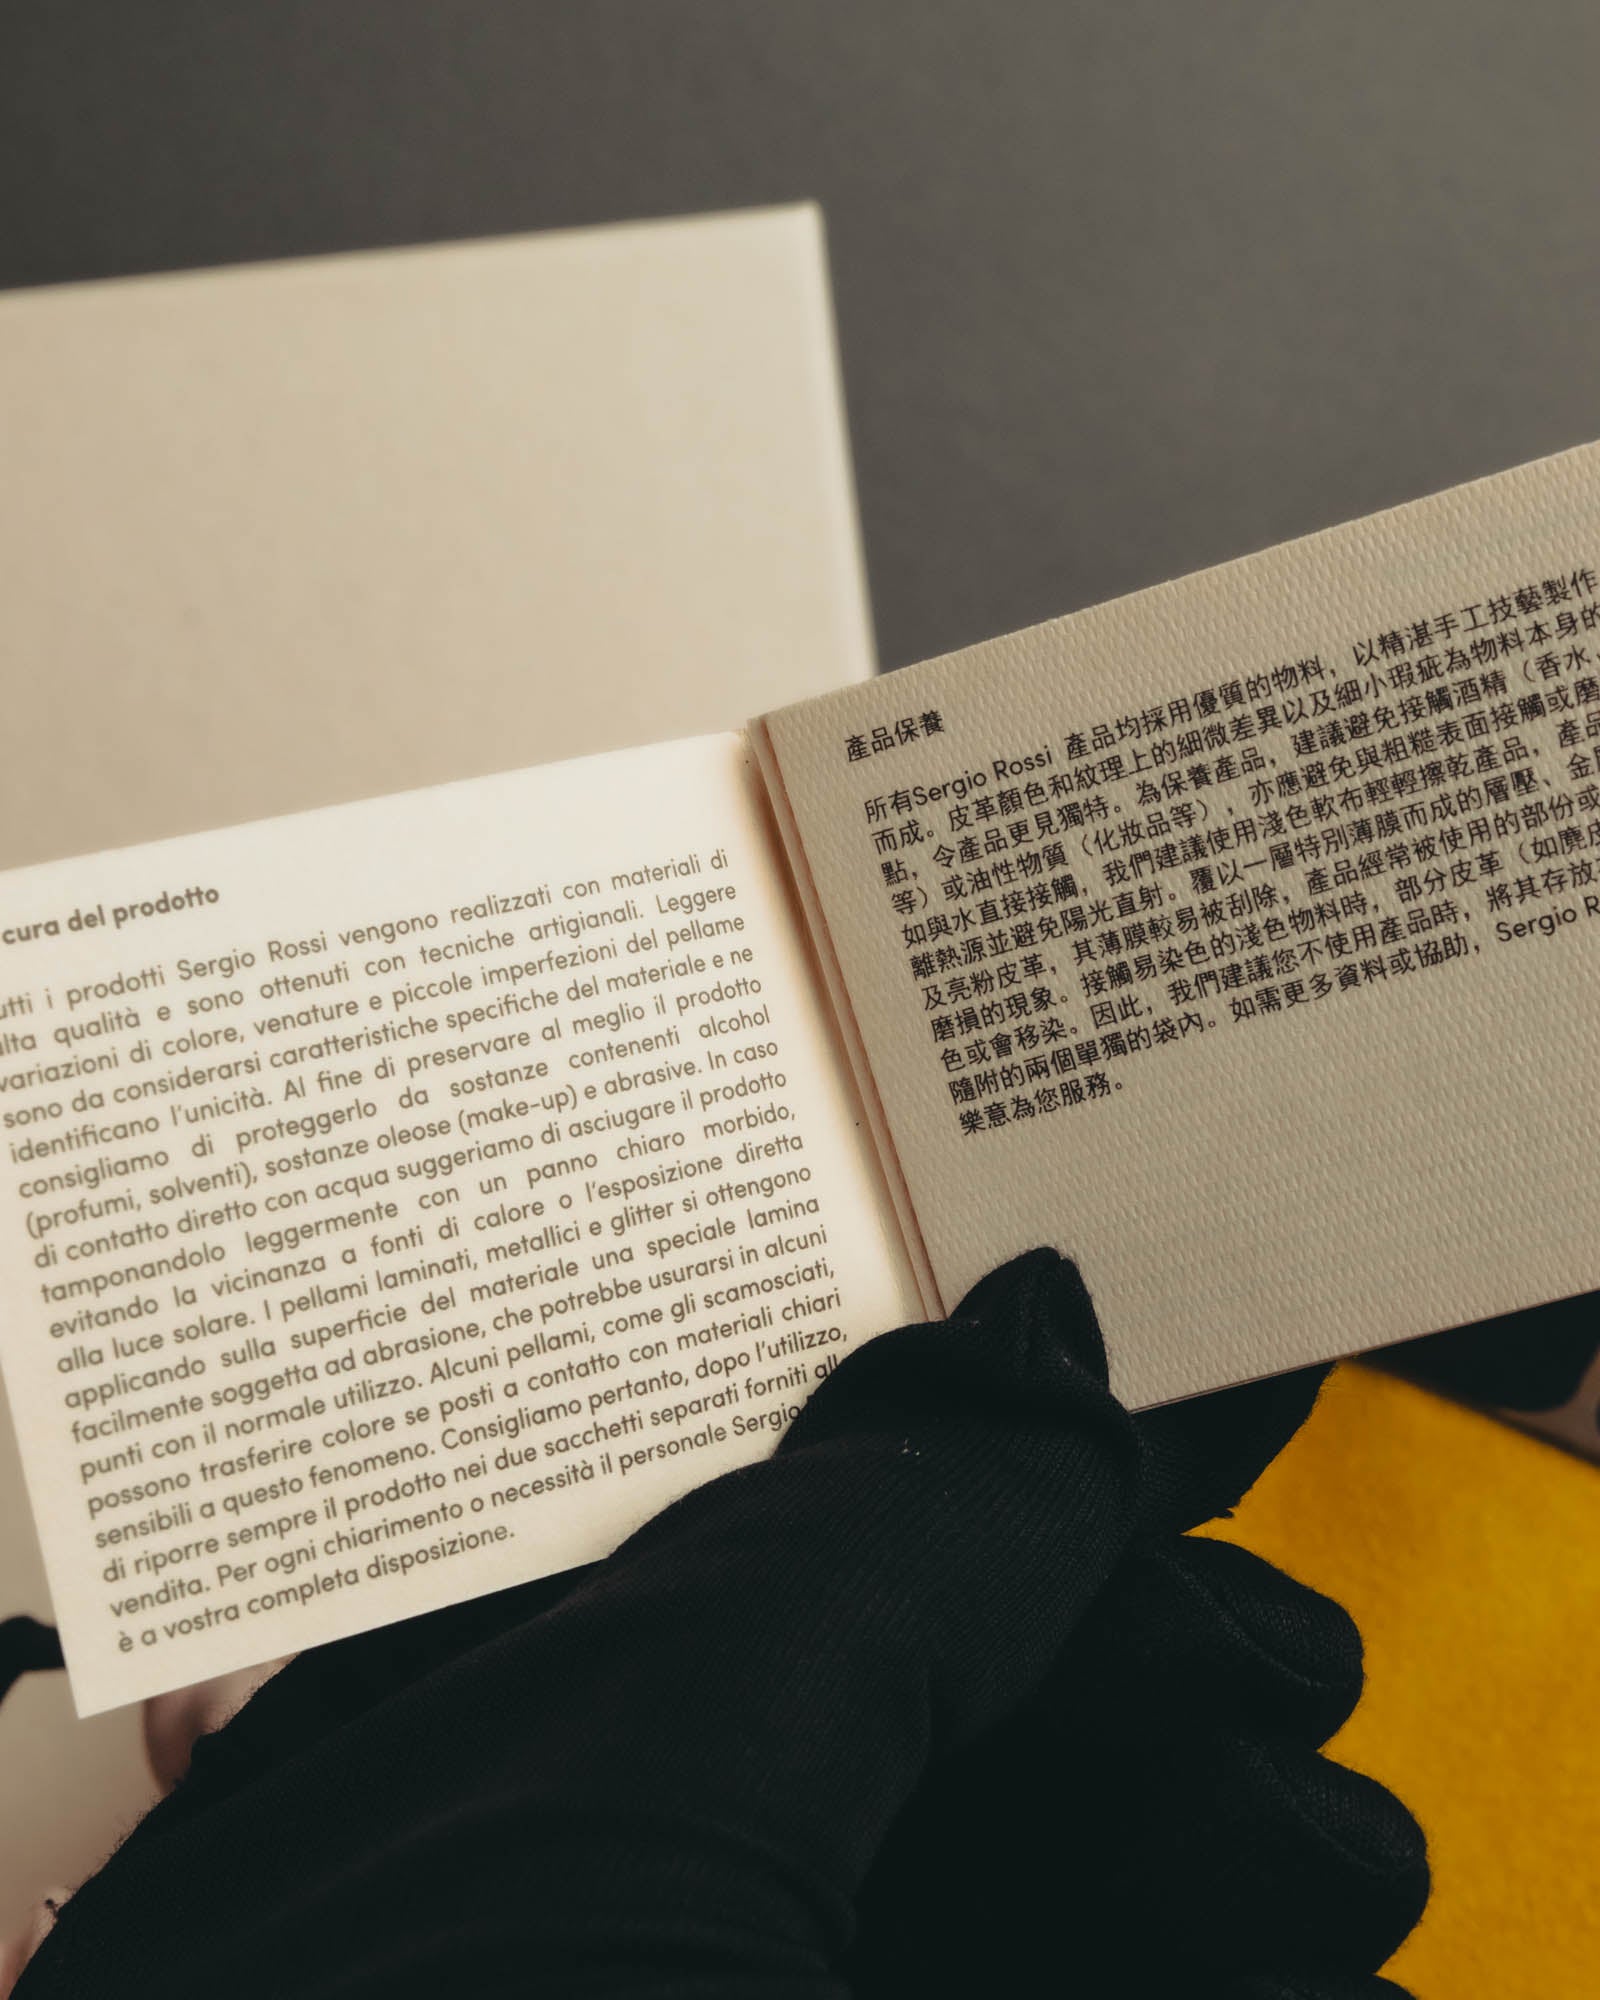 cura del prodotto
utti i prodotti Sergio Rossi vengono realizzati con materiali di
alta qualità e sono ottenuti con tecniche artigianali. Leggere
variazioni di colore, venature e piccole imperfezioni del pellame
sono da considerarsi caratteristiche specifiche del materiale e ne
identificano l'unicità. Al fine di preservare al meglio il prodotto
consigliamo di proteggerlo da sostanze contenenti alcohol
(profumi, solventi), sostanze oleose (make-up) e abrasive. In caso
di contatto diretto con acqua suggeriamo di asciugare il prodotto
tamponandolo leggermente con un panno chiaro morbido,
evitando la vicinanza a fonti di calore o l'esposizione diretta
alla luce solare. I pellami laminati, metallici e glitter si ottengono
applicando sulla superficie del materiale una speciale lamina
facilmente soggetta ad abrasione, che potrebbe usurarsi in alcuni
punti con il normale utilizzo. Alcuni pellami, come gli scamosciati,
possono trasferire colore se posti a contatto con materiali chiari
sensibili a questo fenomeno. Consigliamo pertanto, dopo l'utilizzo,
di riporre sempre il prodotto nei due sacchetti separati forniti all
vendita. Per ogni chiarimento o necessità il personale Sergio
è a vostra completa disposizione.
產品保養
所有Sergio Rossi 產品均採用優質的物料，以精湛手工技藝製作
而成。皮革顏色和紋理上的細微差異以及細小瑕疵為物料本身的
點，令產品更見獨特。為保養產品，建議避免接觸酒精（香水、
等）或油性物質（化妝品等），亦應避免與粗糙表面接觸或磨
如與水直接接觸，我們建議使用淺色軟布輕輕擦乾產品，產品
離熱源並避免陽光直射。覆以一層特別薄膜而成的層壓、金
及亮粉皮革，其薄膜較易被刮除，產品經常被使用的部份或
磨損的現象。接觸易染色的淺色物料時，部分皮革（如麂皮
色或會移染。因此，我們建議您不使用產品時，將其存放
隨附的兩個單獨的袋內。如需更多資料或協助，Sergio R
樂意為您服務。